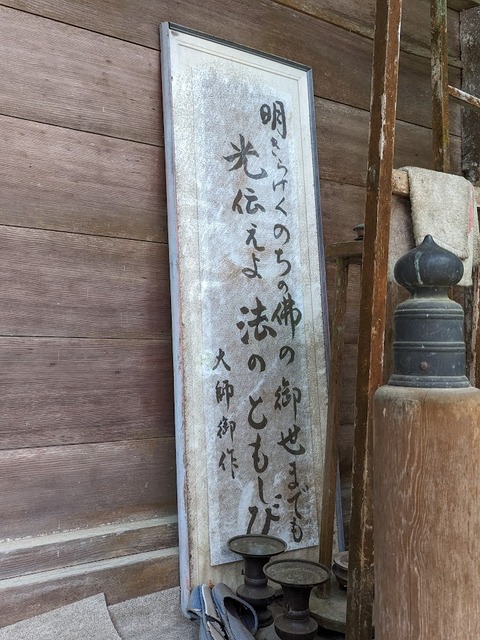 明きらけくのちの佛の御世までも
光伝えよ法のともしび
大師御作